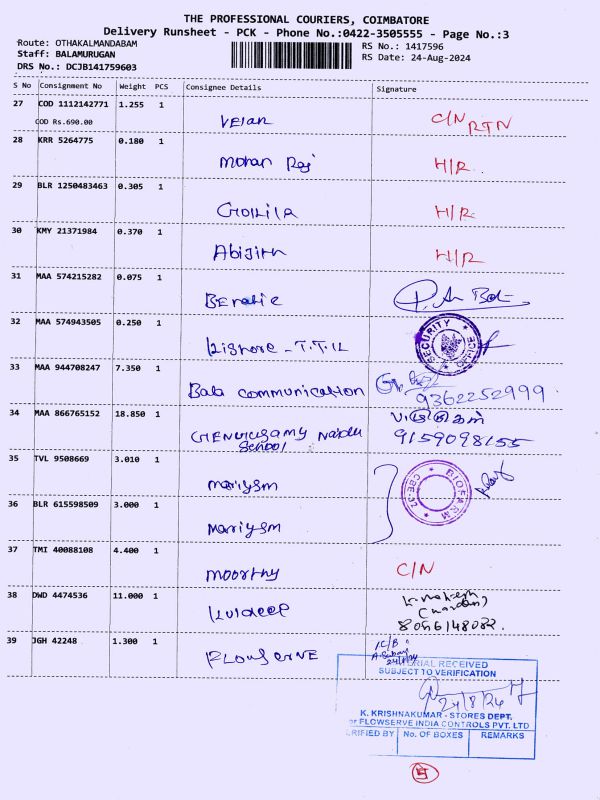 THE PROFESSIONAL COURIERS, COIMBATORE
Delivery Runsheet - PCK - Phone No.:0422-3505555 - Page No.:3
Route: OTHAKALMANDABAM
Staff: BALAMURUGAN
DRS No.: DCJB141759603
RS No.: 1417596
RS Date: 24-Aug-2024
S No Consignment No Weight PCS Consignee Details Signature
27 COD 1112142771 1.255 1
COD Rs.690.00 Velan C/N RTN
28 KRR 5264775 0.180 1
Mohan Raj H/R
29 BLR 1250483463 0.305 1
H/R
30 KMY 21371984 0.370 1
Abijith H/R
31 MAA 574215282 0.075 1
32 MAA 574943505 0.250 1
Kishore - T.T.K SECURITY OFFICE
33 MAA 944708247 7.350 1
Bala communication 9362252999
34 MAA 866765152 18.850 1
Naidu
School 9159098155
35 TVL 9508669 3.010 1
Mariysm BIOFARM CBE-3
36 BLR 615598509 3.000 1
Mariysm
37 TMI 40088108 4.400 1
Moorthy C/N
38 DWD 4474536 11.000 1
Kuldeep
8056148082.
39 JGH 42248 1.300 1
FLOWSERVE
24/8/24
ERIAL RECEIVED
SUBJECT TO VERIFICATION
24/8/24
K. KRISHNAKUMAR - STORES DEPT.
or FLOWSERVE INDIA CONTROLS PVT. LTD
RIFIED BY No. OF BOXES REMARKS